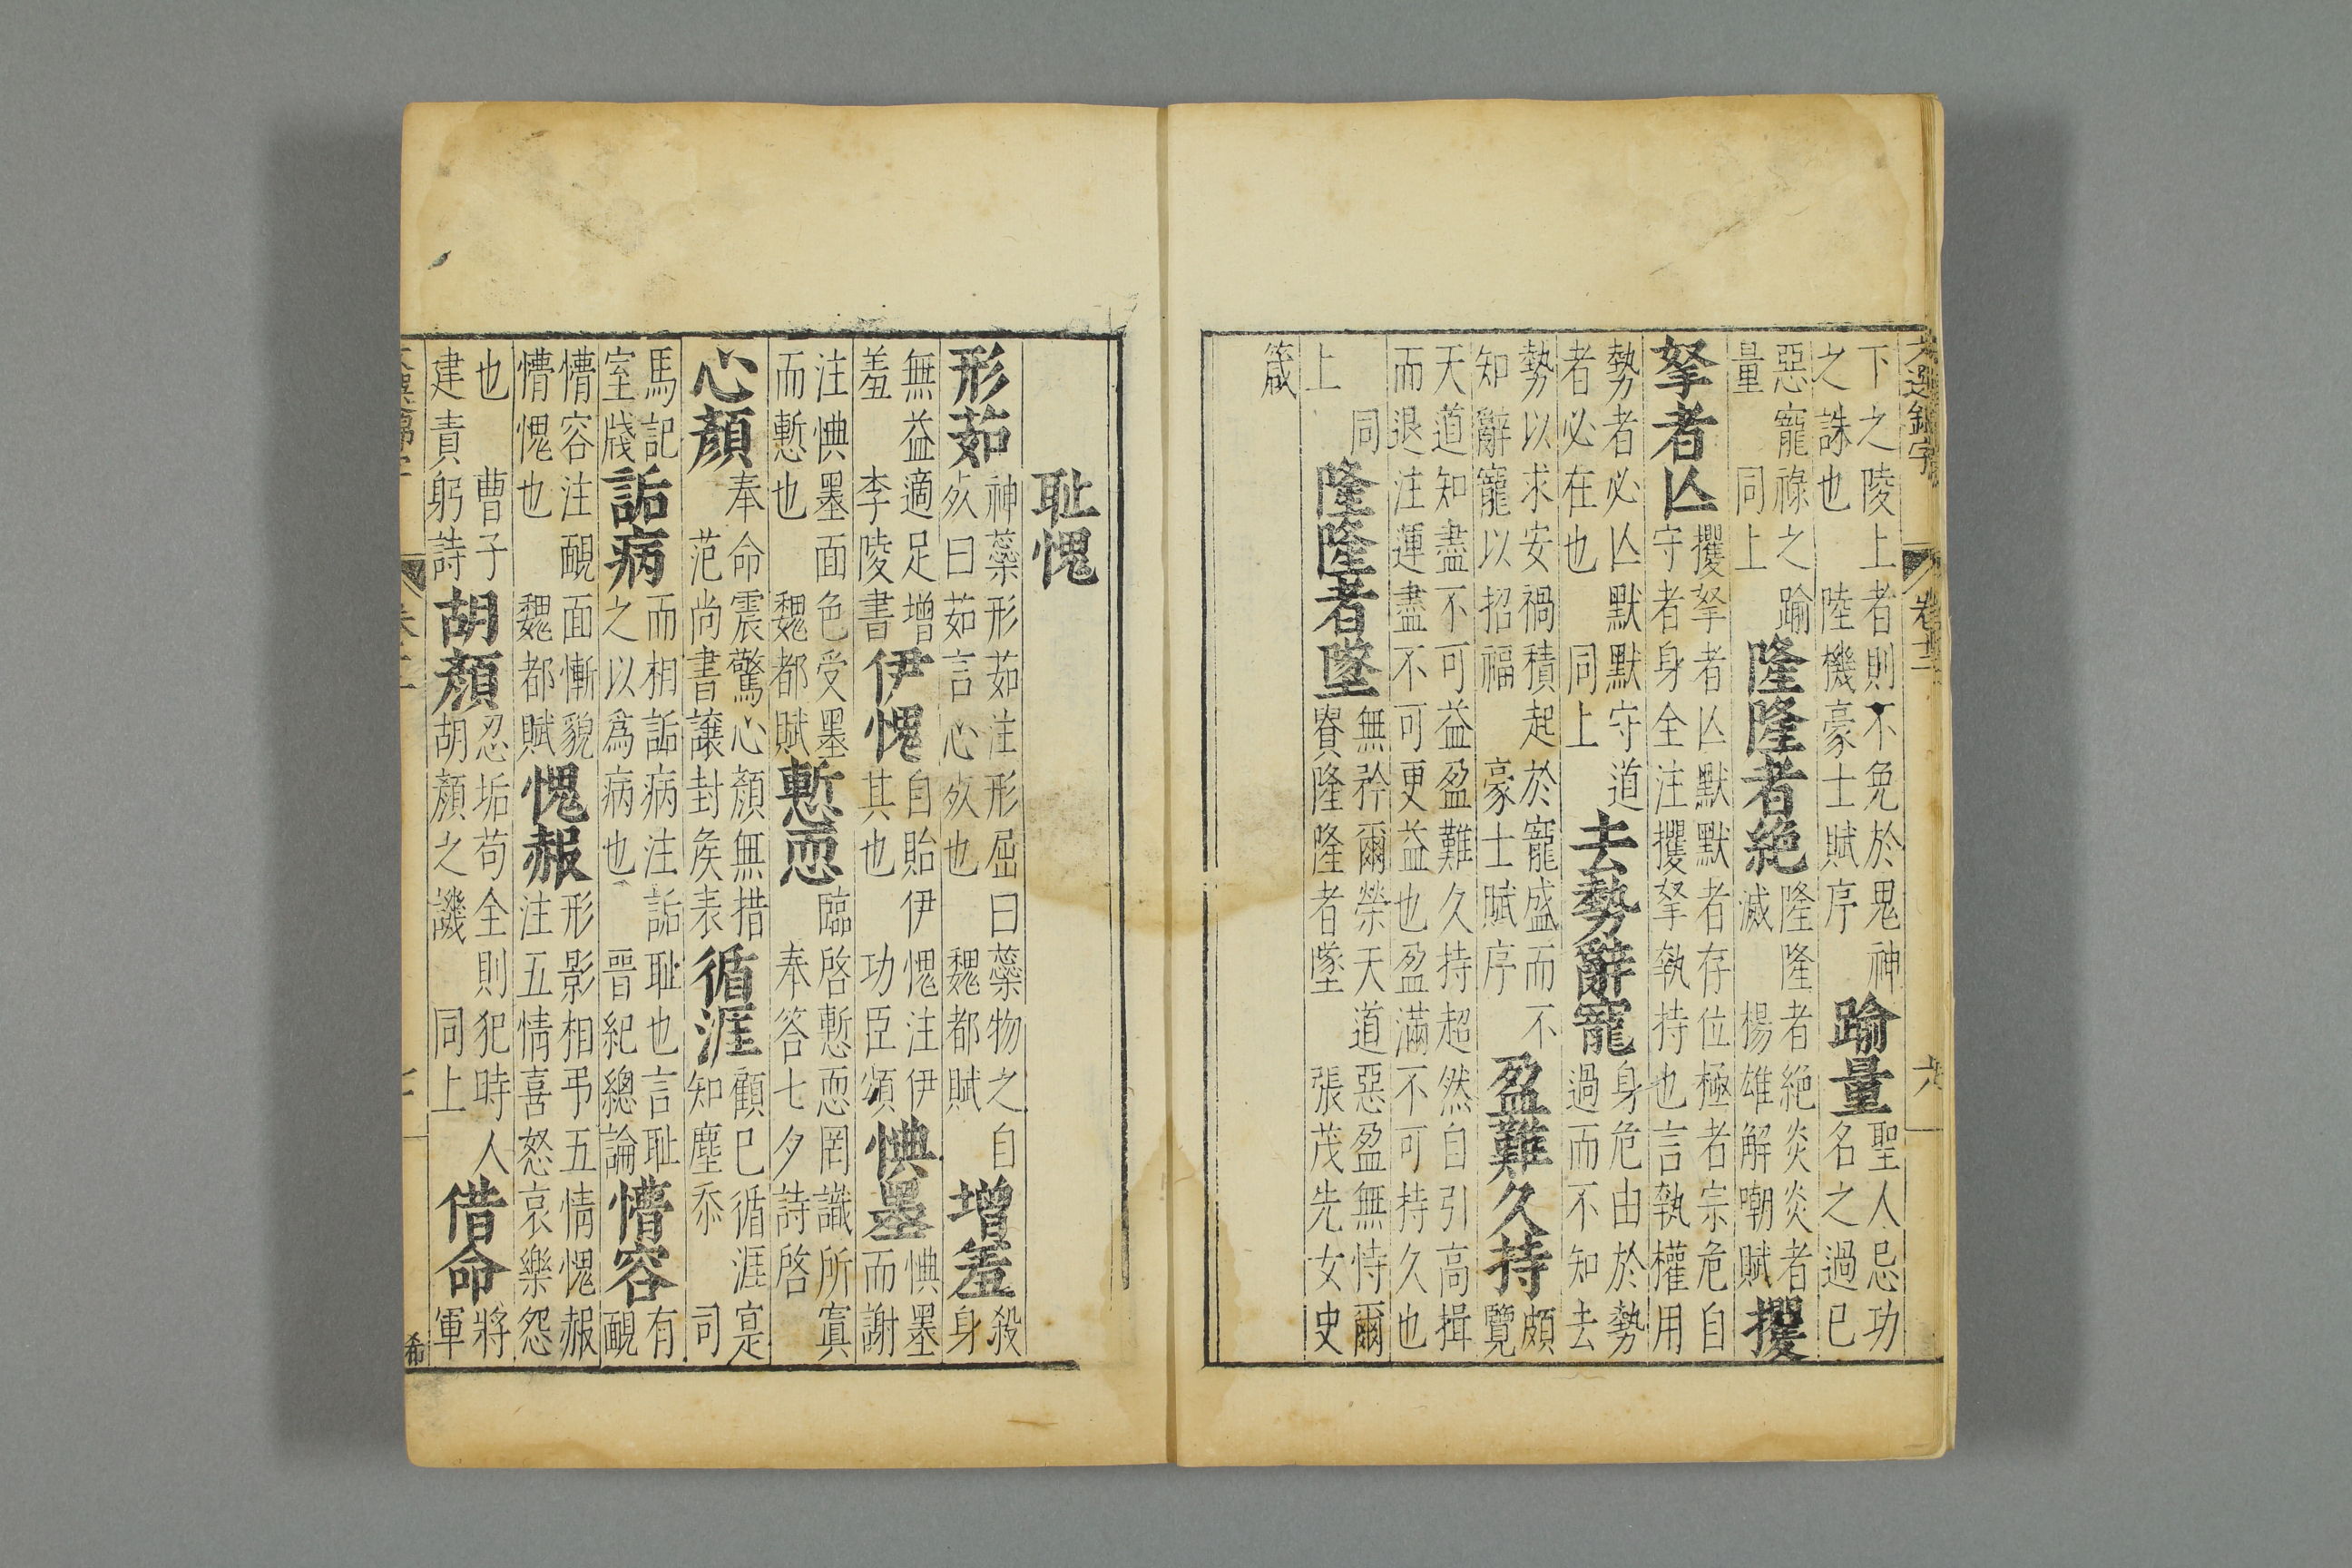 文選錦字　卷廿二　六
下之陵上者則不免於鬼神
之誅也　陸機豪士賦序
踰量
聖人忌功
名之過已
惡寵祿之踰
量　同上
隆隆者絶
隆隆者絶炎炎者
滅　楊雄解嘲賦
攫
拏者亾
攫拏者亾默默者存位極者宗危自
守者身全注攫拏執持也言執權用
勢者必亾默默守道
者必在也　同上
去勢辭寵
身危由於勢
過而不知去
勢以求安禍積起於寵盛而不
知辭寵以招福　豪士賦序
盈難久持
頗
覽
天道知盡不可益盈難久持超然自引高揖
而退注運盡不可更益也盈滿不可持久也
同
上
隆隆者墜
無矜爾榮天道惡盈無恃爾
賫隆隆者墜　張茂先女史
箴
耻愧
形茹
神蘂形茹注形屈曰蘂物之自
死曰茹言心死也　魏都賦
增羞
殺
身
無益適足增
羞　李陵書
伊愧
自貽伊愧注伊
其也　功臣頌
㥏墨
㥏墨
而謝
注㥏墨面色受墨
而慙也　魏都賦
慙恧
臨啓慙恧罔識所寘
奉答七夕詩啓
心顔
奉命震驚心顔無措
范尚書讓封矦表
循涯
顧已循涯寔
知塵忝　司
馬記
室牋
詬病
而相詬病注詬耻也言耻
之以爲病也　晉紀總論
懵容
有
靦
懵容注靦面慚貌
懵愧也　魏都賦
愧赧
形影相弔五情愧赧
注五情喜怒哀樂怨
也　曹子
建責躬詩
胡顔
忍垢苟全則犯時人
胡顔之譏　同上
借命
將
軍
希